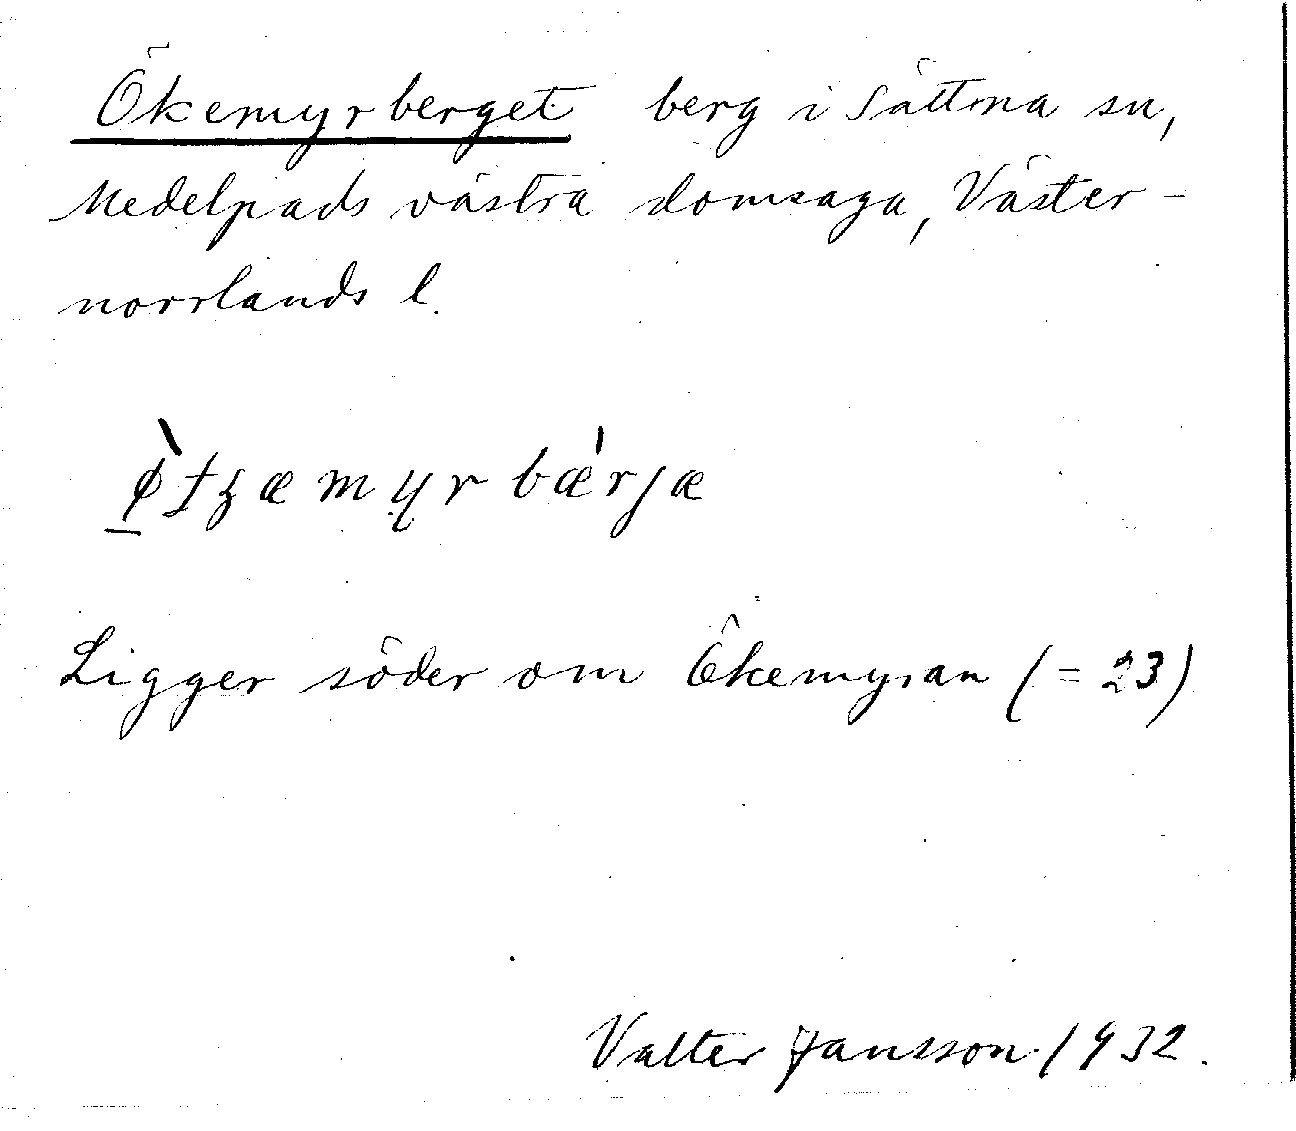 Ökemyrberget berg i Sättna sn,
Medelpads västra domsaga, Väster-
norrlands l.
Ligger söder om Ökemyran (= 23)
Valter Jansson 1932.